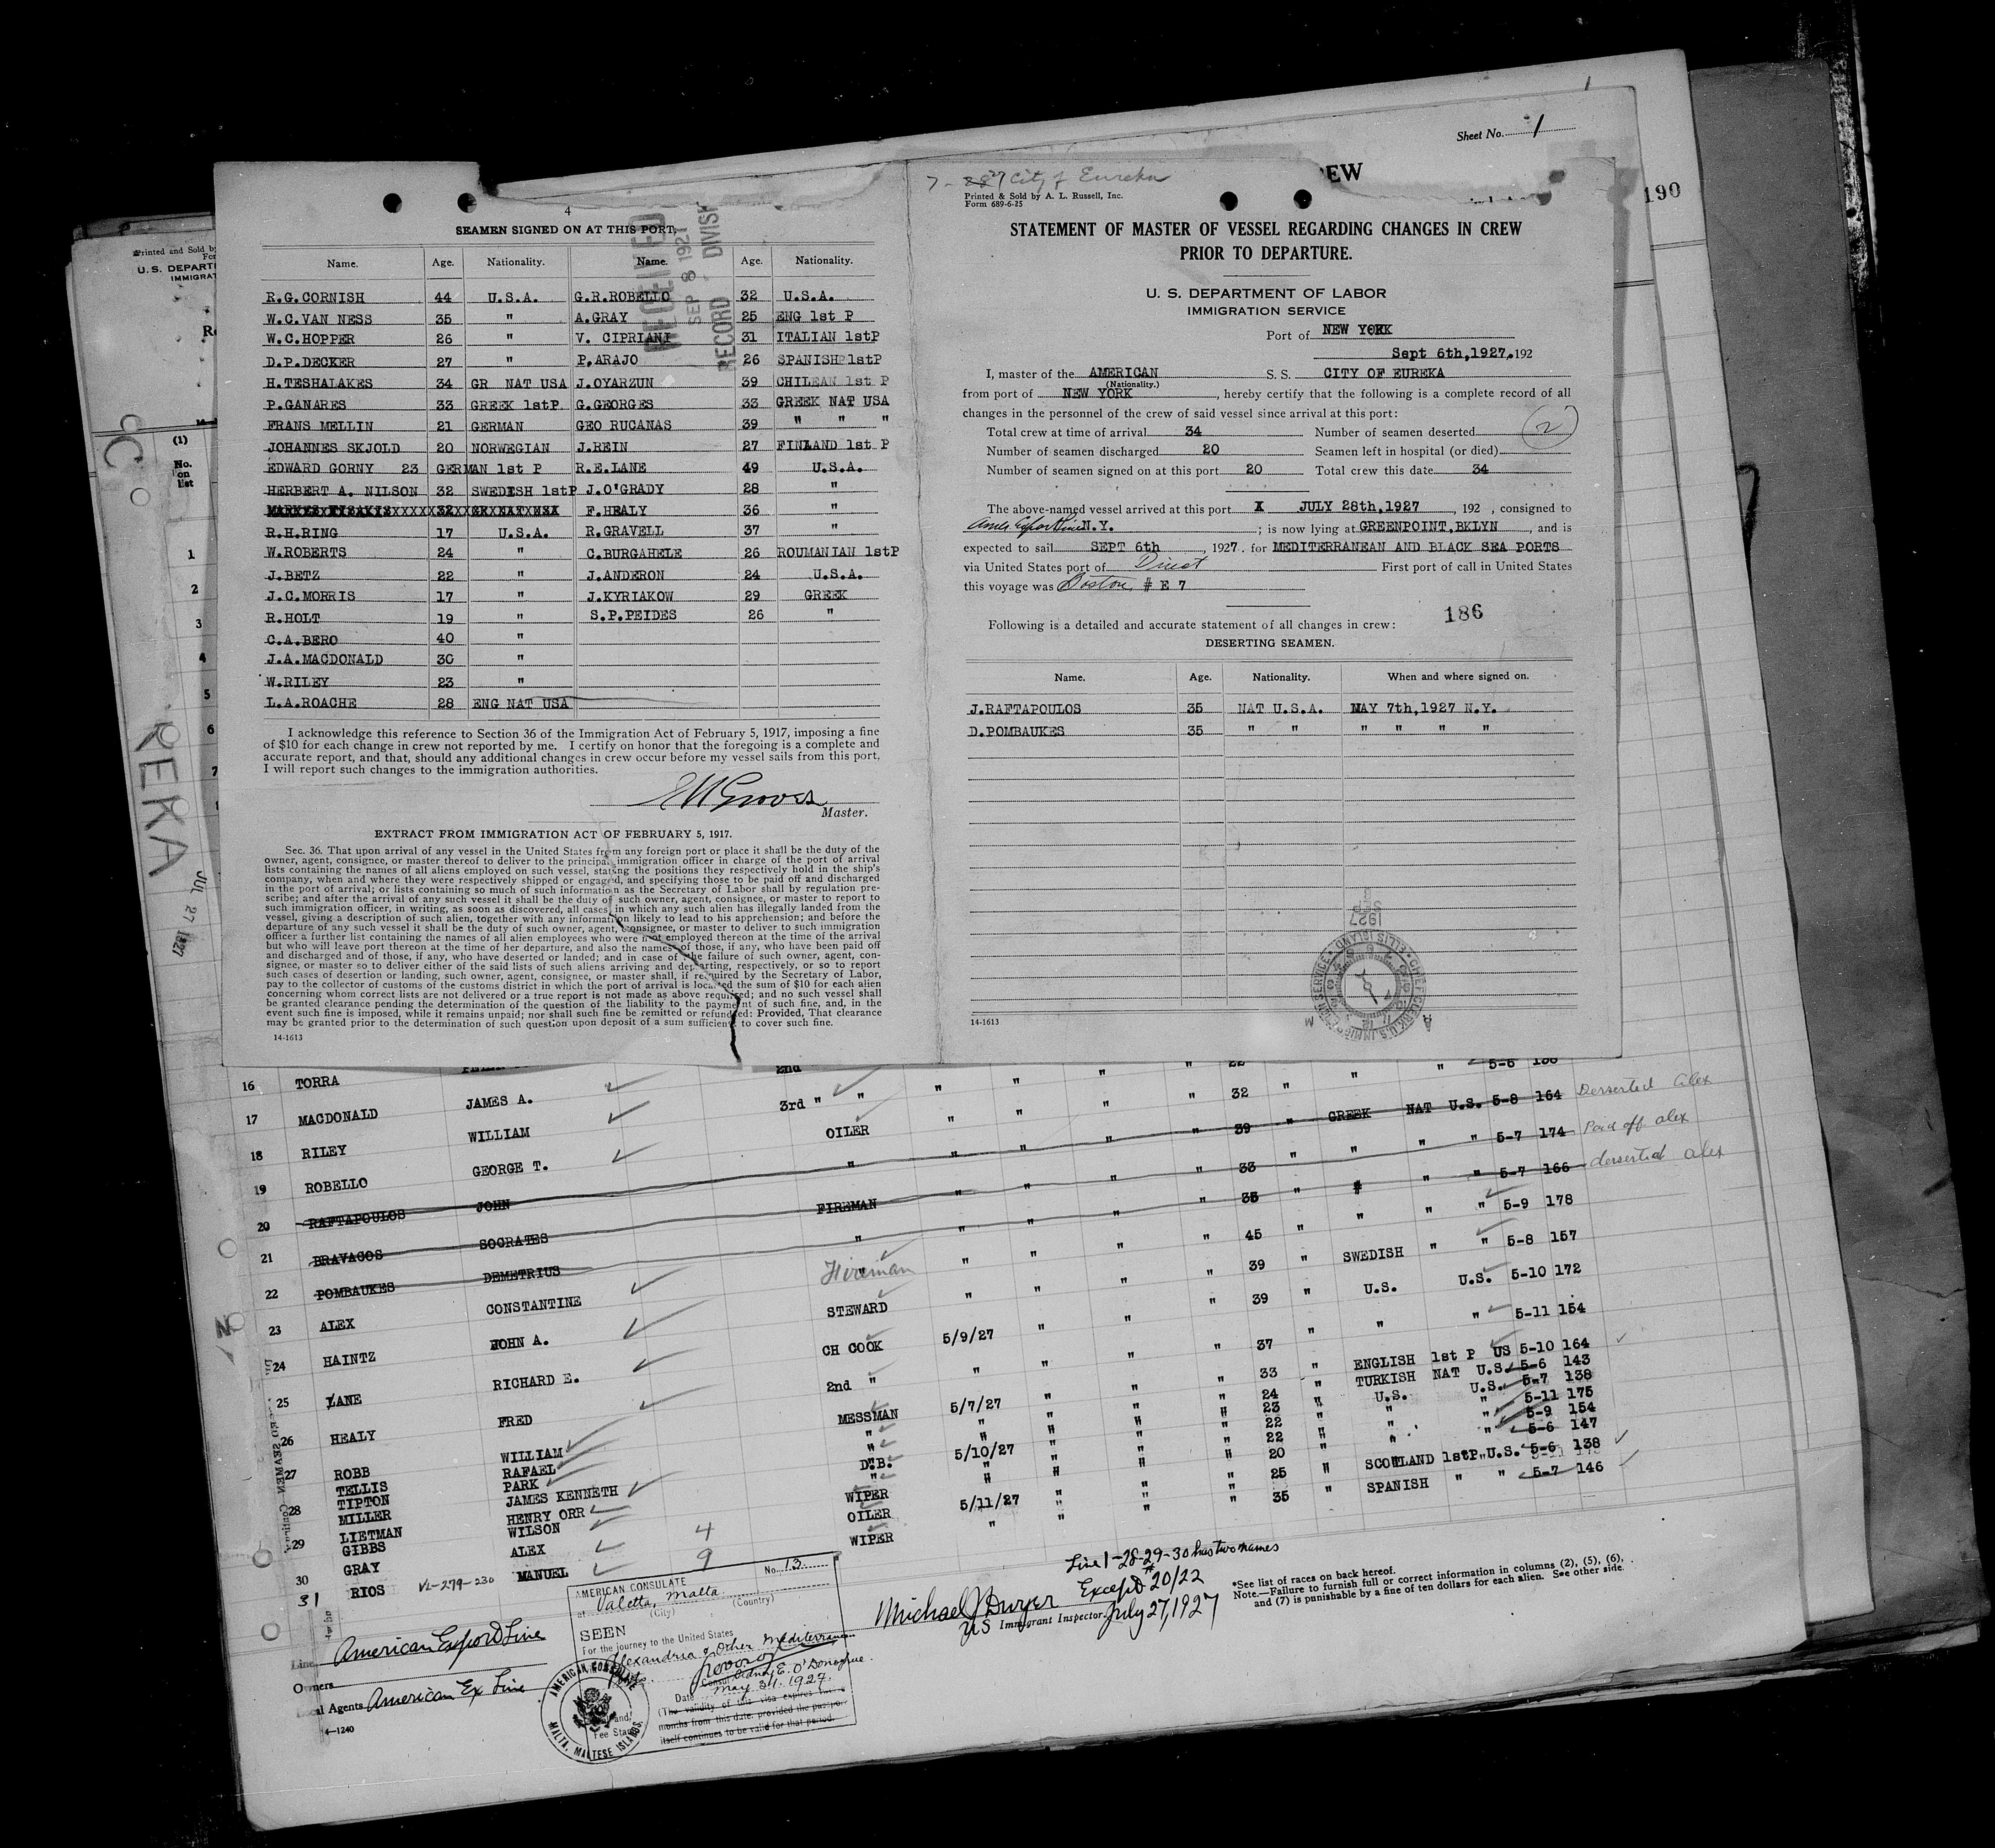 Sheet No. 1
EW
190
Printed and Sold by
U. S. DEPART
IMMIGRAT
(1)
No.
on
list
1
2
3
4
5
6
7
REKA
JUL 27 1927
4
SEAMEN SIGNED ON AT THIS PORT.
RECEIVED
SEP 8 1927
RECORD DIVIS
Name. Age. Nationality. Name. Age. Nationality.
R.G.CORNISH 44 U.S.A. G.R.ROBELLO 32 U.S.A.
W.C.VAN NESS 35 " A.GRAY 25 ENG 1st P
W.C.HOPPER 26 " V. CIPRIANI 31 ITALIAN 1stP
D.P.DECKER 27 " P.ARAJO 26 SPANISH 1stP
H.TESHALAKES 34 GR NAT USA J.OYARZUN 39 CHILEAN 1st P
P.GANARES 33 GREEK 1stP. G.GEORGES 33 GREEK NAT USA
FRANS MELLIN 21 GERMAN GEO RUCANAS 39 " " "
JOHANNES SKJOLD 20 NORWEGIAN J.REIN 27 FINLAND 1st P
EDWARD GORNY 23 GERMAN 1st P R.E.LANE 49 U.S.A.
HERBERT A. NILSON 32 SWEDISH 1stP J.O'GRADY 28 "
F.HEALY 36 "
R.H.RING 17 U.S.A. R.GRAVELL 37 "
W.ROBERTS 24 " C.BURGAHELE 26 ROUMANIAN 1stP
J.BETZ 22 " J.ANDERON 24 U.S.A.
J.C.MORRIS 17 " J.KYRIAKOW 29 GREEK
R.HOLT 19 " S.P.PEIDES 26 "
C.A.BERO 40 "
J.A.MACDONALD 30 "
W.RILEY 23 "
L.A.ROACHE 28 ENG NAT USA
I acknowledge this reference to Section 36 of the Immigration Act of February 5, 1917, imposing a fine
of $10 for each change in crew not reported by me. I certify on honor that the foregoing is a complete and
accurate report, and that, should any additional changes in crew occur before my vessel sails from this port,
I will report such changes to the immigration authorities.
Master.
EXTRACT FROM IMMIGRATION ACT OF FEBRUARY 5, 1917.
Sec. 36. That upon arrival of any vessel in the United States from any foreign port or place it shall be the duty of the
owner, agent, consignee, or master thereof to deliver to the principal immigration officer in charge of the port of arrival
lists containing the names of all aliens employed on such vessel, stating the positions they respectively hold in the ship's
company, when and where they were respectively shipped or engaged, and specifying those to be paid off and discharged
in the port of arrival; or lists containing so much of such information as the Secretary of Labor shall by regulation pre-
scribe; and after the arrival of any such vessel it shall be the duty of such owner, agent, consignee, or master to report to
such immigration officer, in writing, as soon as discovered, all cases in which any such alien has illegally landed from the
vessel, giving a description of such alien, together with any information likely to lead to his apprehension; and before the
departure of any such vessel it shall be the duty of such owner, agent, consignee, or master to deliver to such immigration
officer a further list containing the names of all alien employees who were not employed thereon at the time of the arrival
but who will leave port thereon at the time of her departure, and also the names of those, if any, who have been paid off
and discharged and of those, if any, who have deserted or landed; and in case of the failure of such owner, agent, con-
signee, or master so to deliver either of the said lists of such aliens arriving and departing, respectively, or so to report
such cases of desertion or landing, such owner, agent, consignee, or master shall, if required by the Secretary of Labor,
pay to the collector of customs of the customs district in which the port of arrival is located the sum of $10 for each alien
concerning whom correct lists are not delivered or a true report is not made as above required; and no such vessel shall
be granted clearance pending the determination of the question of the liability to the payment of such fine, and, in the
event such fine is imposed, while it remains unpaid; nor shall such fine be remitted or refunded: Provided, That clearance
may be granted prior to the determination of such question upon deposit of a sum sufficient to cover such fine.
14-1613
City of Eureka
Printed & Sold by A. L. Russell, Inc.
Form 689-6-25
STATEMENT OF MASTER OF VESSEL REGARDING CHANGES IN CREW
PRIOR TO DEPARTURE.
U. S. DEPARTMENT OF LABOR
IMMIGRATION SERVICE
Port of NEW YORK
Sept 6th,1927.192
I, master of the AMERICAN S. S. CITY OF EUREKA
(Nationality.)
from port of NEW YORK, hereby certify that the following is a complete record of all
changes in the personnel of the crew of said vessel since arrival at this port:
Total crew at time of arrival 34 Number of seamen deserted 2
Number of seamen discharged 20 Seamen left in hospital (or died)
Number of seamen signed on at this port 20 Total crew this date 34
The above-named vessel arrived at this port X JULY 28th,1927, 192 , consigned to
Amer Export Line N.Y. ; is now lying at GREENPOINT,BKLYN, and is
expected to sail SEPT 6th, 1927. for MEDITERRANEAN AND BLACK SEA PORTS
via United States port of Direct First port of call in United States
this voyage was Boston # E 7
186
Following is a detailed and accurate statement of all changes in crew:
DESERTING SEAMEN.
Name. Age. Nationality. When and where signed on.
J.RAFTAPOULOS 35 NAT U.S.A. MAY 7th,1927 N.Y.
D.POMBAUKES 35 " " " " " "
14-1613
16 TORRA 2nd " " " " 22 " " " 5-6 138
17 MACDONALD JAMES A. 3rd " " " " " " 32 " " "
18 RILEY WILLIAM OILER " " " " 39 " GREEK NAT U.S. 5-8 164 Desserted Alex
19 ROBELLO GEORGE T. " " " " " 33 " " " " 5-7 174 Paid off alex
20 RAFTAPOULOS JOHN FIREMAN " " " " 35 " " " " 5-7 166 desserted alex
21 BRAVACOS SOCRATES " " " " " 45 " " " " 5-9 178
22 POMBAUKES DEMETRIUS Fireman " " " " 39 " SWEDISH " " 5-8 157
23 ALEX CONSTANTINE STEWARD " " " " 39 " U.S. U.S. 5-10 172
24 HAINTZ JOHN A. CH COOK 5/9/27 " " " 37 " " " 5-11 154
25 LANE RICHARD E. 2nd " " " " " 33 " ENGLISH 1st P US 5-10 164
26 HEALY FRED MESSMAN 5/7/27 " " " 24 " TURKISH NAT U.S. 5-6 143
27 ROBB WILLIAM " " " " " 23 " U.S. U.S. 5-7 138
TELLIS RAFAEL " " " " 22 " " " 5-11 175
28 TIPTON PARK D.B. 5/10/27 " " " 22 " " " 5-9 154
MILLER JAMES KENNETH " " " " " 20 " " " 5-6 147
29 LIETMAN HENRY ORR WIPER
GIBBS WILSON OILER 5/11/27
30 GRAY ALEX WIPER " " " " 25 " SCOTLAND 1stP U.S. 5-6 138
31 RIOS VL-279-230 MANUEL " " " 35 " SPANISH " " 5-7 146
4
9
Line 1-28-29-30 has two names
Except #20/22
Michael J Dwyer
US Immigrant Inspector. July 27, 1927
*See list of races on back hereof.
Note.—Failure to furnish full or correct information in columns (2), (5), (6),
and (7) is punishable by a fine of ten dollars for each alien. See other side.
Line American Export Line
Owners
Local Agents American Ex Line
14—1240
AMERICAN CONSULATE No. 13
at Valetta, Malta
(City) (Country)
SEEN
For the journey to the United States
Alexandria & Other Mediterranean
Sidney E. O'Donoghue.
Date May 31. 1927.
(The validity of this visa expires
months from this date, provided the passport
itself continues to be valid for that period.
AMERICAN CONSULATE
MALTA, MALTESE ISLANDS.
Fee Stamp